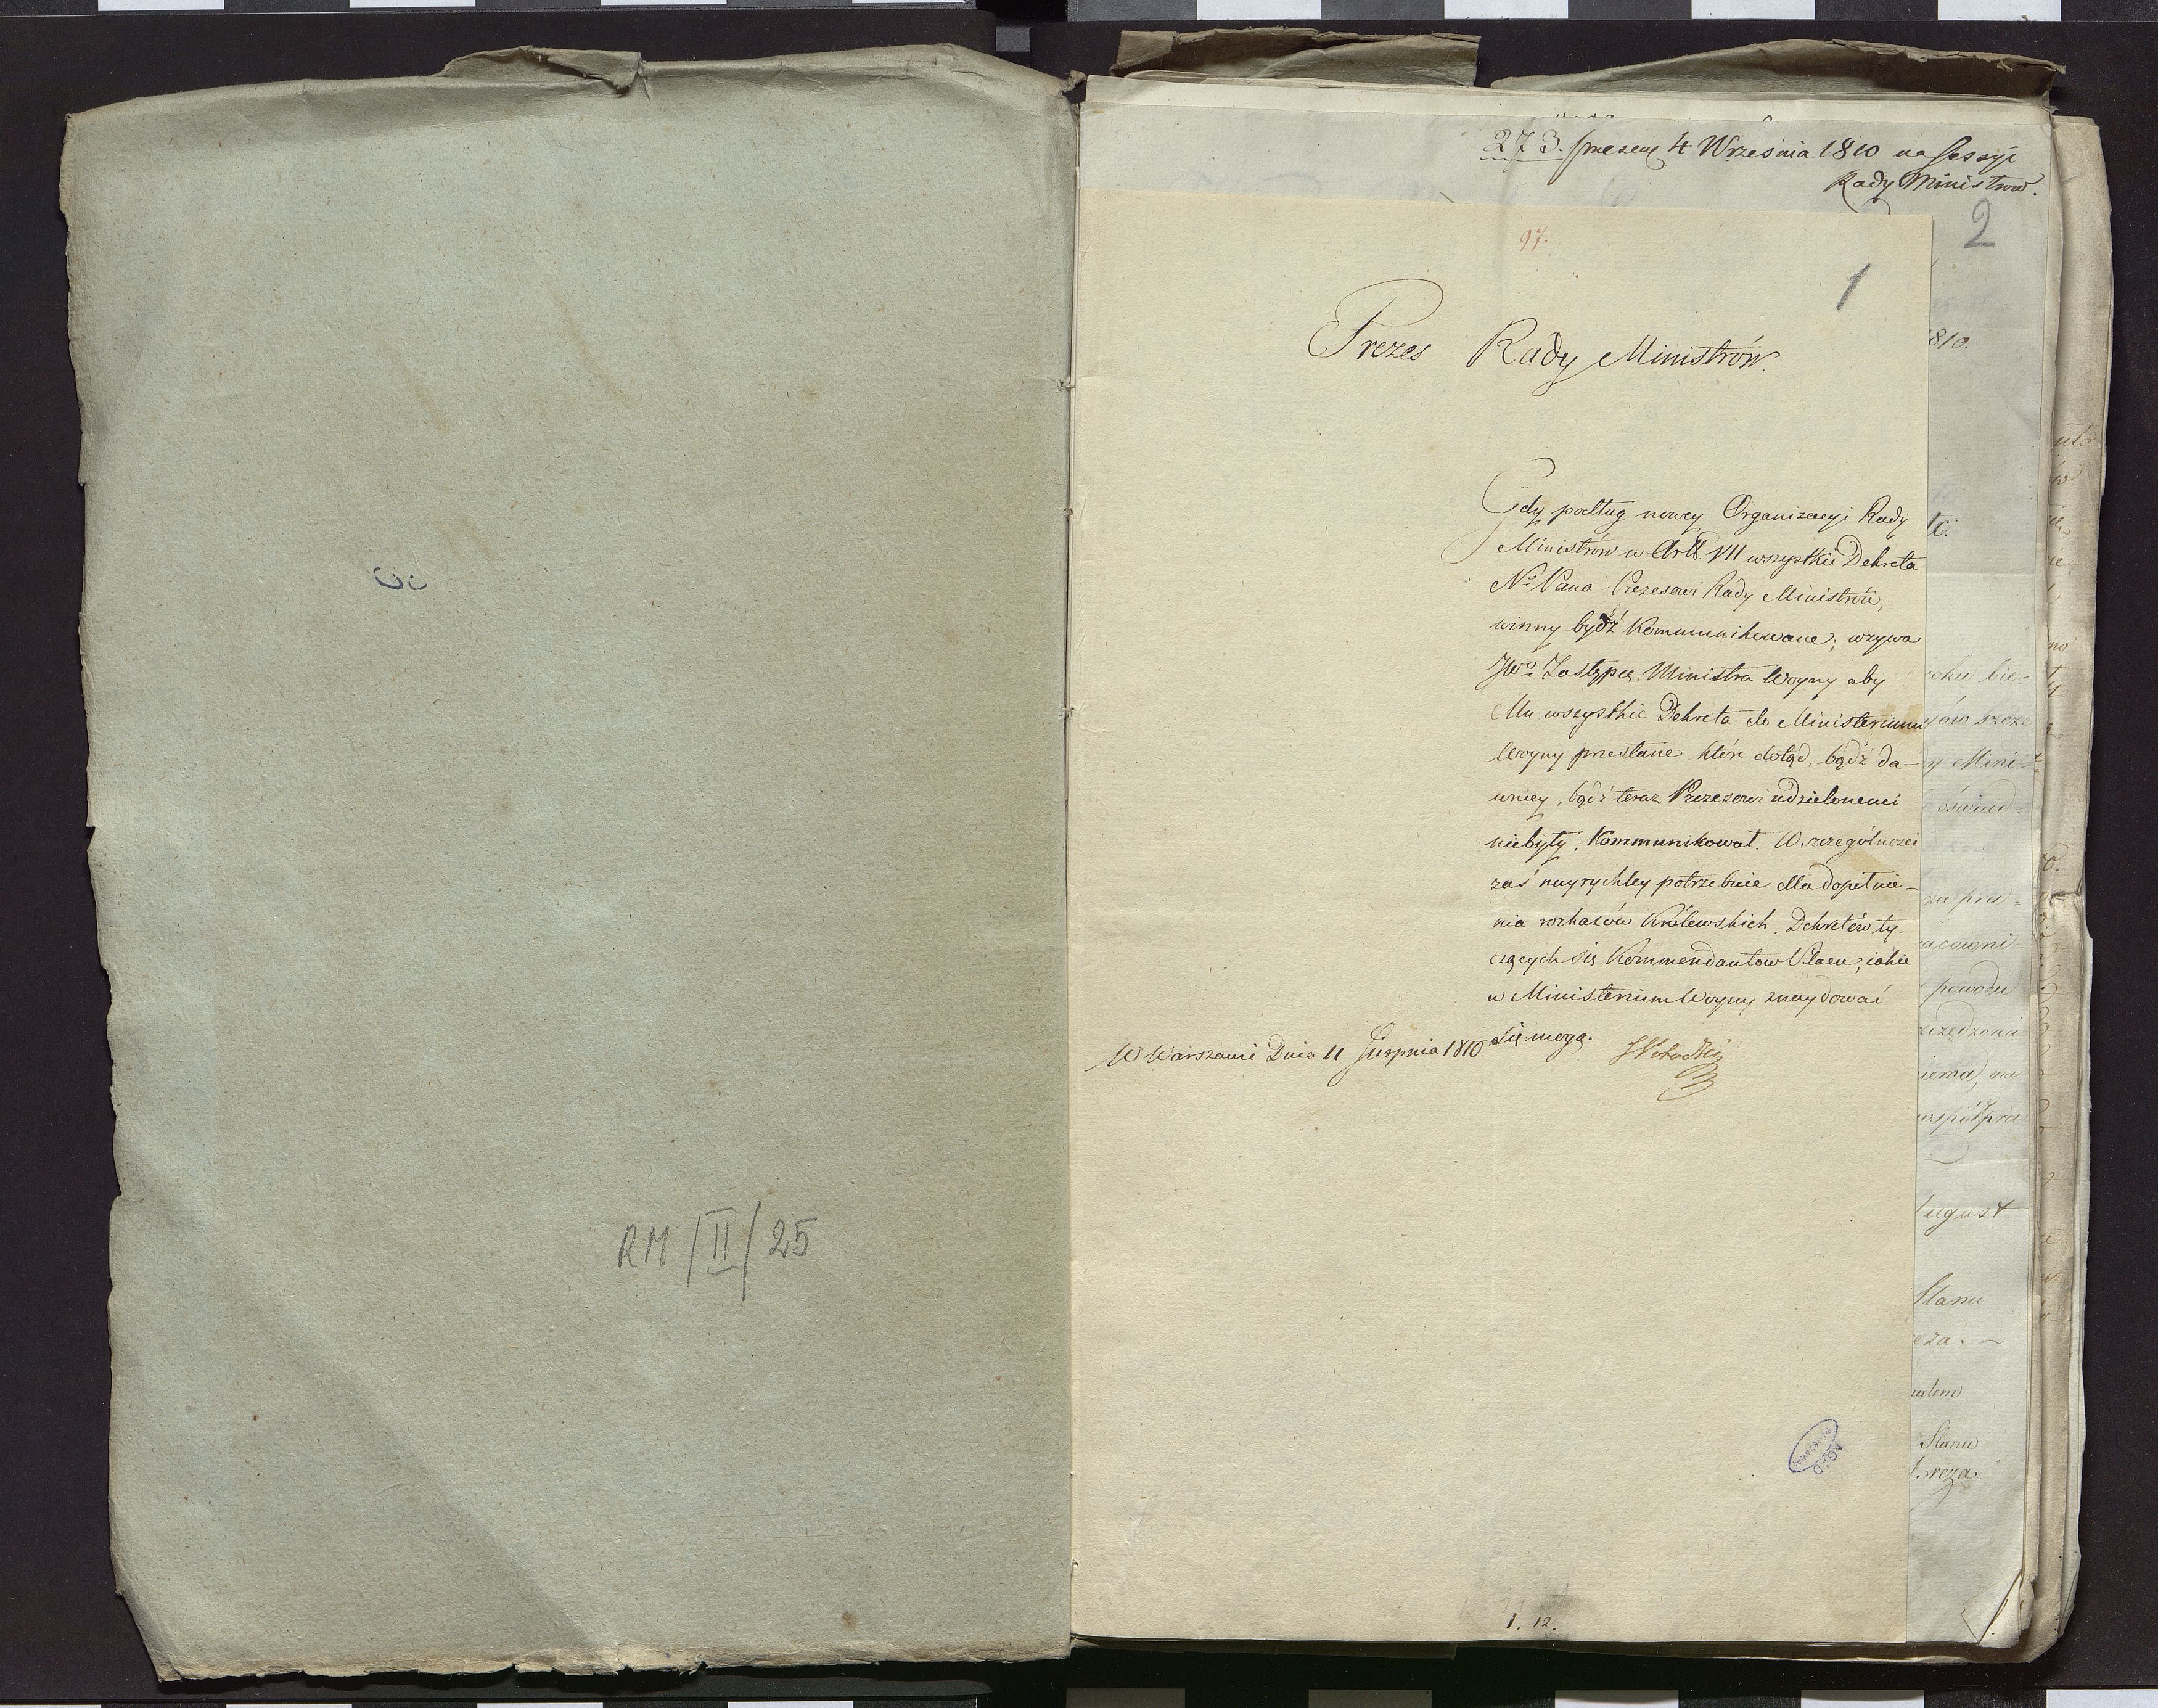 RM/II/25
273. præsent 4 Września 1810 na Sessyi
Rady Ministrow.
2
97.
1
Prezes Rady Ministrów.
Gdy podług nowey Organizacyi Rady
Ministrów w Art. VII wszystkie Dekreta
No Pana Prezesowi Rady Ministrów,
winny bydź Kommunikowane; wzywa
JWo Zastępcę Ministra Woyny aby
Mu wszystkie Dekreta do Ministerium
Woyny przesłane które dotąd, bądź da-
wniey, bądź teraz Prezesowi udzielonemi
niebyły, Kommunikował. W szczególności
zaś nayrychley potrzebuie dla dopełnie-
nia rozkazów Królewskich. Dekretów ty-
czących się Kommendantow Placu, iakie
w Ministerium Woyny znaydować
się mogą.
W Warszawie Dnia 11 Sierpnia 1810.
810.
roku bie-
ów szcze
y Mini-
za pra-
acowni-
powodu
iema, na
współpra
August
Stanu
eza.
Stanu
Breza.
AGAD
1. 12.